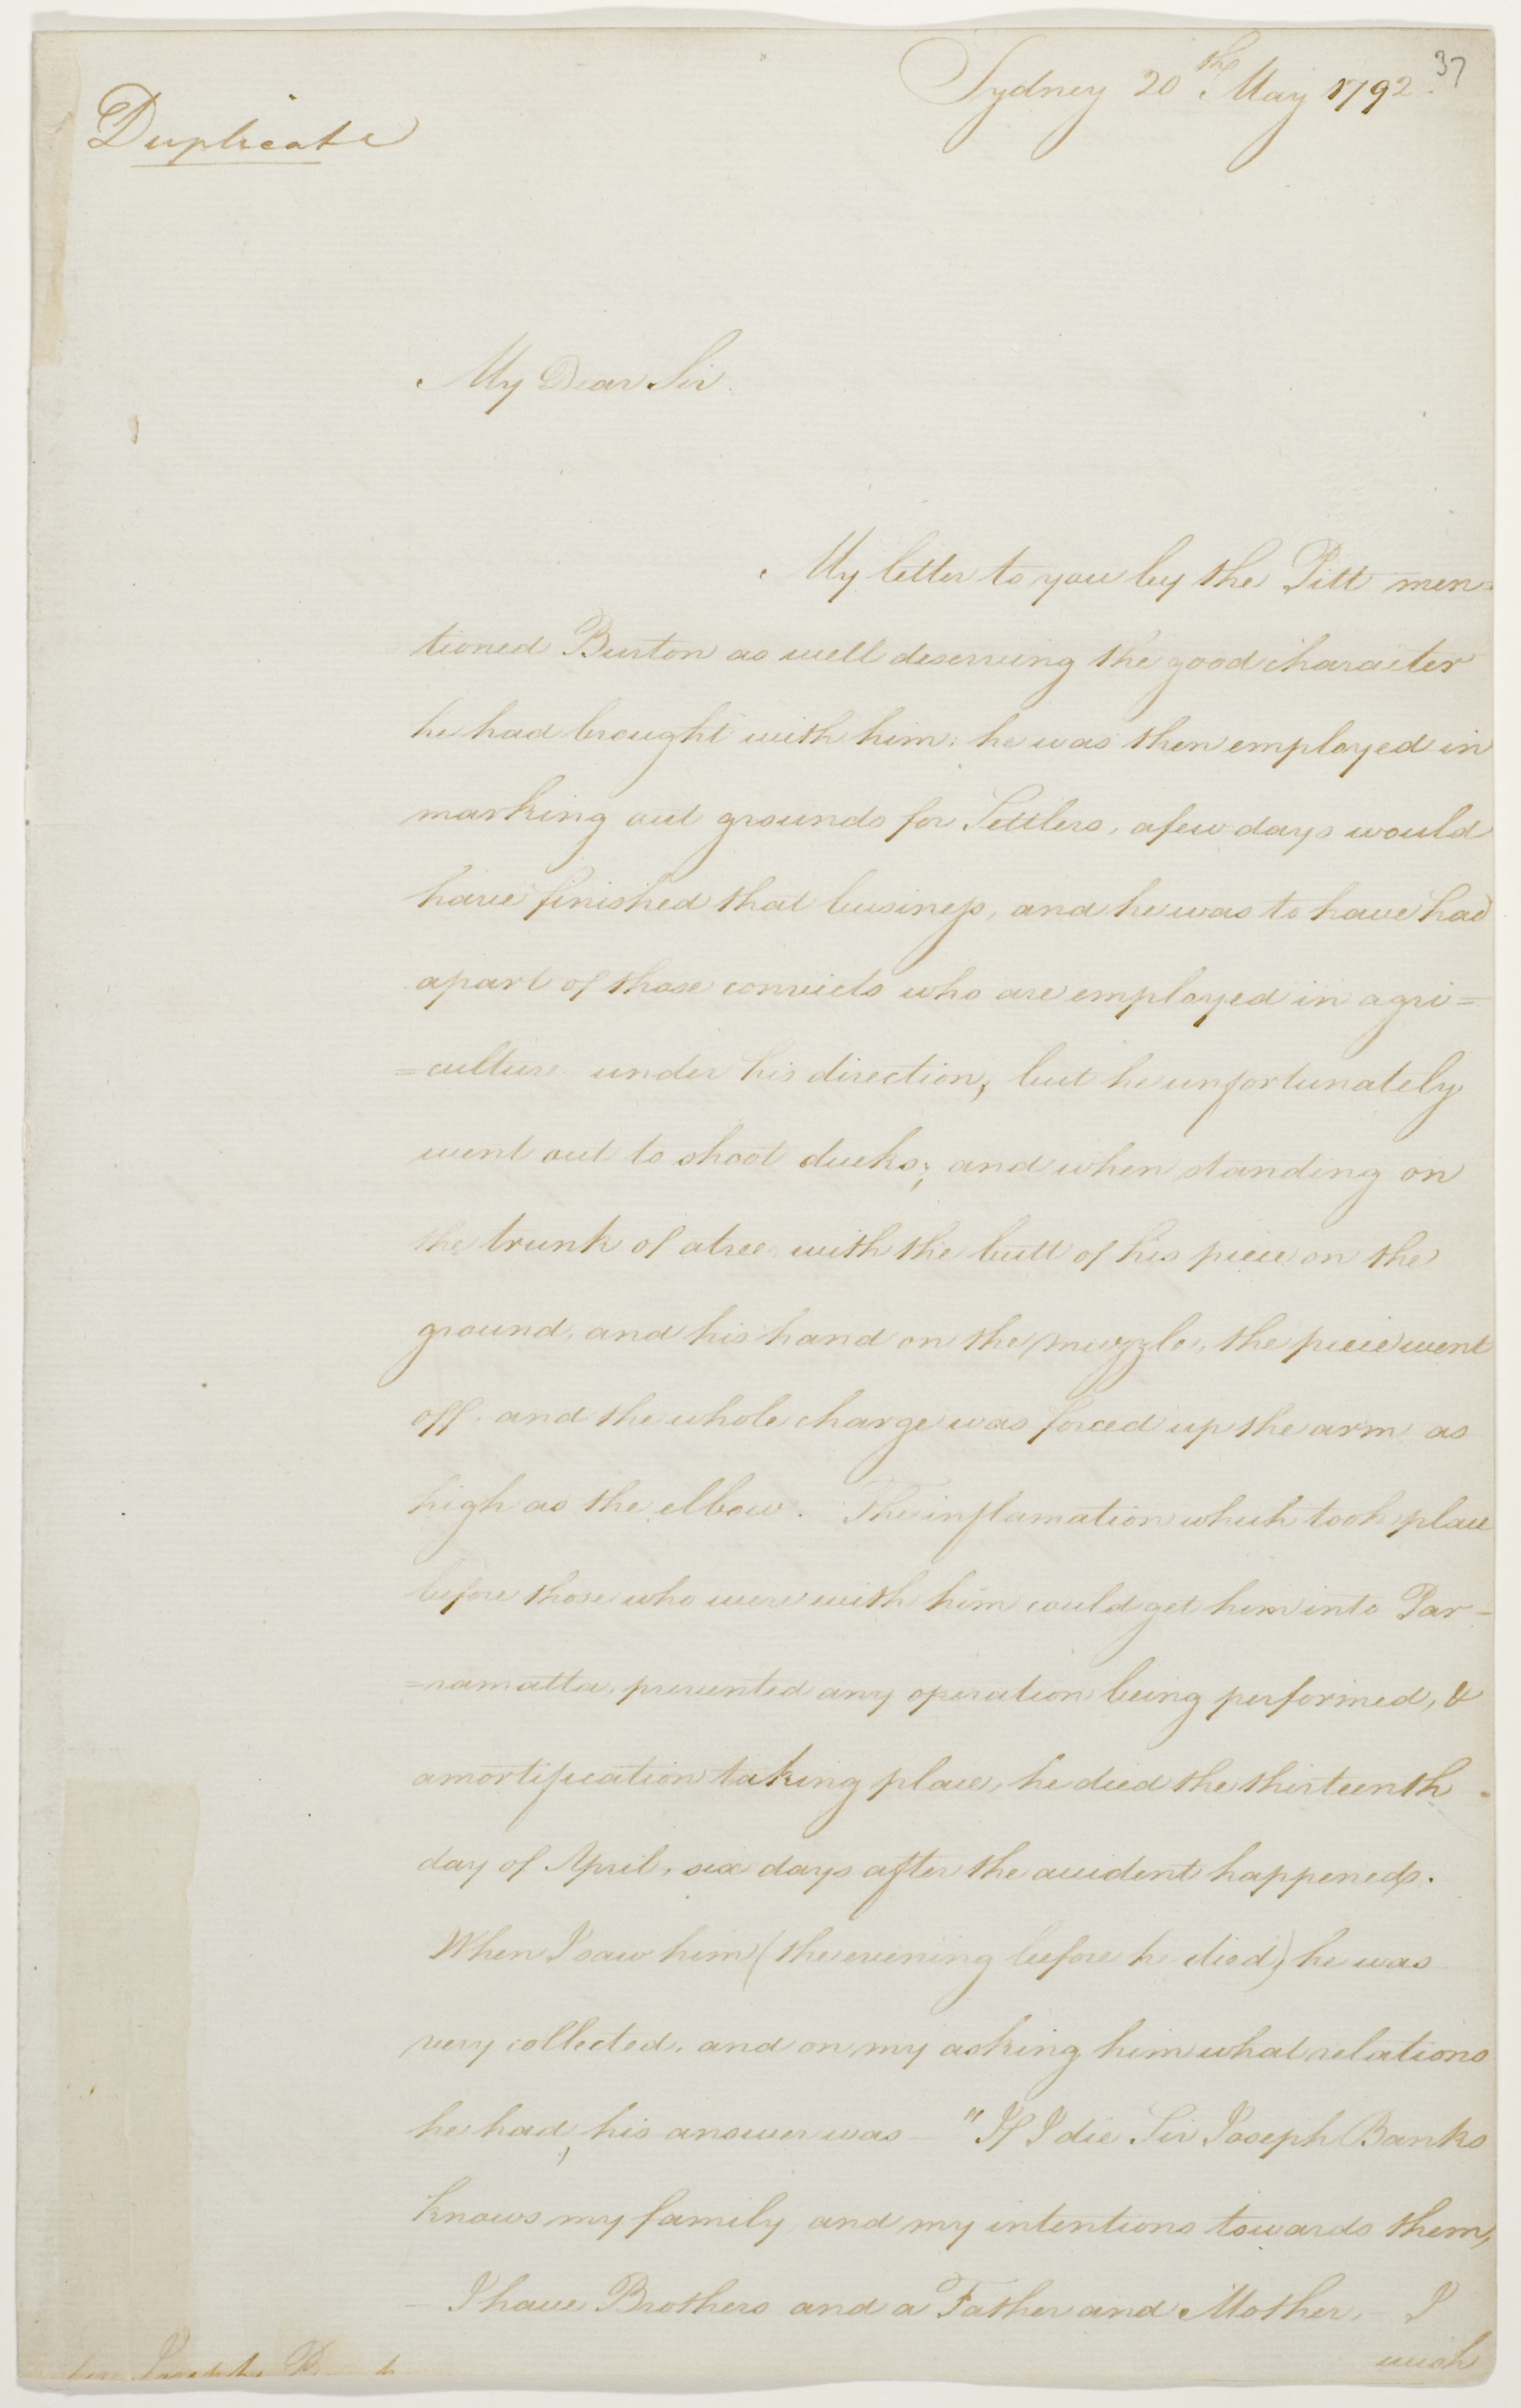 37
Sydney 20th May 1792.
Duplicate
My Dear Sir.
My letter to you by the Pitt men=
tioned Burton as well deserving the good character
he had brought with him: he was then employed in
marking out grounds for Settlers, a few days would
have finished that business, and he was to have had
a part of those convicts who are employed in agri=
=culture under his direction, but he unfortunately
went out to shoot ducks; and when standing on
the trunk of a tree, with the butt of his piece on the
ground, and his hand on the muzzle, the piece went
off, and the whole charge was forced up the arm as
high as the elbow. The inflamation which took place
before those who were with him could get him into Par-
=ramatta, prevented any operation being performed, &
a mortification taking place, he died the thirteenth
day of April, six days after the accident happened.
When I saw him (the evening before he died) he was
very collected, and on my asking him what relations
he had, his answer was — "If I die Sir Joseph Banks
knows my family, and my intentions towards them,
— I have Brothers and a Father and Mother, — I
wish